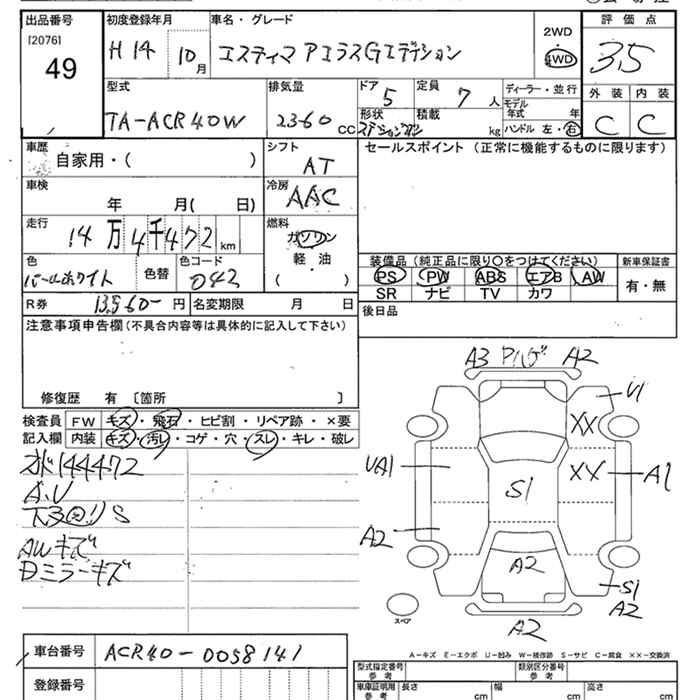 出品番号 初度登録年月 車名・グレード 評価点
[2076]
49
H14 10月
エスティマ アエラスGエディション
2WD
4WD
3.5
型式 排気量 ドア 定員 ディーラー・並行
TA-ACR40W 2360 cc 5 7人
モデル年式 年
形状 積載 kg ハンドル 左・右
ステーションワゴン
外装 内装
C C
車歴 自家用・( ) シフト AT
セールスポイント(正常に機能するものに限ります)
車検 年 月( 日) 冷房 AAC
走行 14万4千472km 燃料 ガソリン
軽・油
( )
色 色替 色コード
パールホワイト 042
装備品(純正品に限り○をつけてください) 新車保証書
PS PW ABS エアB AW 有・無
SR ナビ TV カワ
R券 13,560- 円 名変期限 月 日
後日品
注意事項申告欄(不具合内容等は具体的に記入して下さい)
修復歴 有〔箇所 〕
検査員 FW キズ・飛石・ヒビ割・リペア跡・×要
記入欄 内装 キズ・汚レ・コゲ・穴・スレ・キレ・破レ
144472
A.U
S
AWキズ
Dミラーキズ
A3 A2
U1
XX
UA1 S1 XX A1
A2 A2
S1
A2
A2
スペア
A-キズ E-エクボ U-凹み W-補修跡 S-サビ C-腐食 XX-交換済
車台番号 ACR40-0058141
登録番号
型式指定番号 参考 類別区分番号 参考
車庫証明用 参考 長さ cm 幅 cm 高さ cm